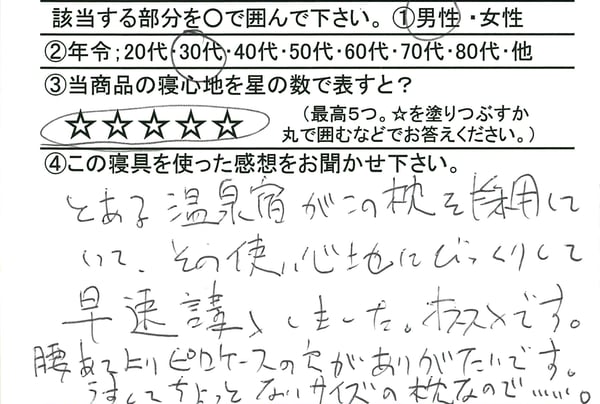 該当する部分を〇で囲んで下さい。①男性・女性
②年令;20代・30代・40代・50代・60代・70代・80代・他
③当商品の寝心地を星の数で表すと?
☆☆☆☆☆ (最高5つ。☆を塗りつぶすか
丸で囲むなどでお答えください。)
④この寝具を使った感想をお聞かせ下さい。
とある温泉宿がこの枕を採用して
いて、その使い心地にびっくりして
早速講入しました。オススメです。
腰あてよりピロケースの穴がありがたいです。
うすくてちょっとないサイズの枕なので……。